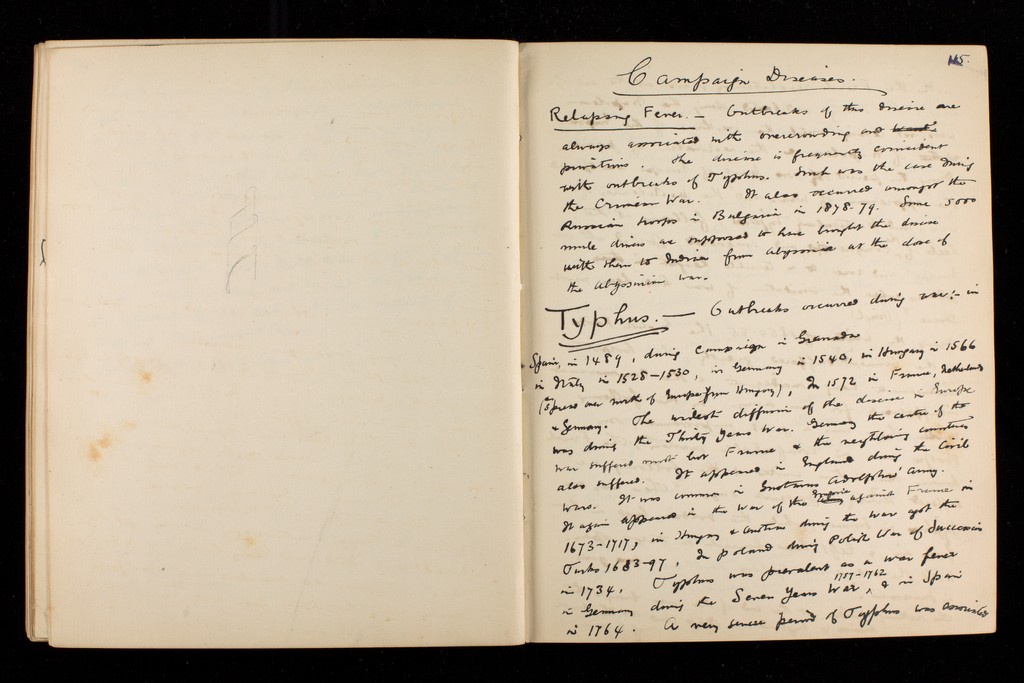 115.
Campaign Diseases.
Relapsing Fever. — Outbreaks of this disease are
always associated with overcrowding and
privations. The disease is frequently coincident
with outbreaks of Typhus. Such was the case during
the Crimean War. It also occurred amongst the
Russian troops in Bulgaria in 1878-79. Some 5000
mule drivers are supposed to have brought the disease
with them to India from Abyssinia at the close of
the Abyssinian war.
Typhus. — Outbreaks occurred during war:- in
Spain, in 1489, during campaign in Granada
in Italy in 1528-1530, in Germany in 1540, in Hungary in 1566
(spread over north of Europe from Hungary), In 1572 in France, Netherlands
& Germany. The widest diffusion of the disease in Europe
was during the Thirty Years War. Germany the centre of the
war suffered most but France & the neighboring countries
also suffered. It appeared in England during the Civil
Wars. It was common in Gustavus Adolphus' army.
It again appeared in the war of the Empire against France in
1673-1717, in Hungary & Austria during the war agst the
Turks 1683-97, In Poland during Polish War of Succession
in 1734. Typhus was prevalent as a war fever
in Germany during the Seven Years War 1757-1762, & in Spain
in 1764. A very severe period of Typhus was associated